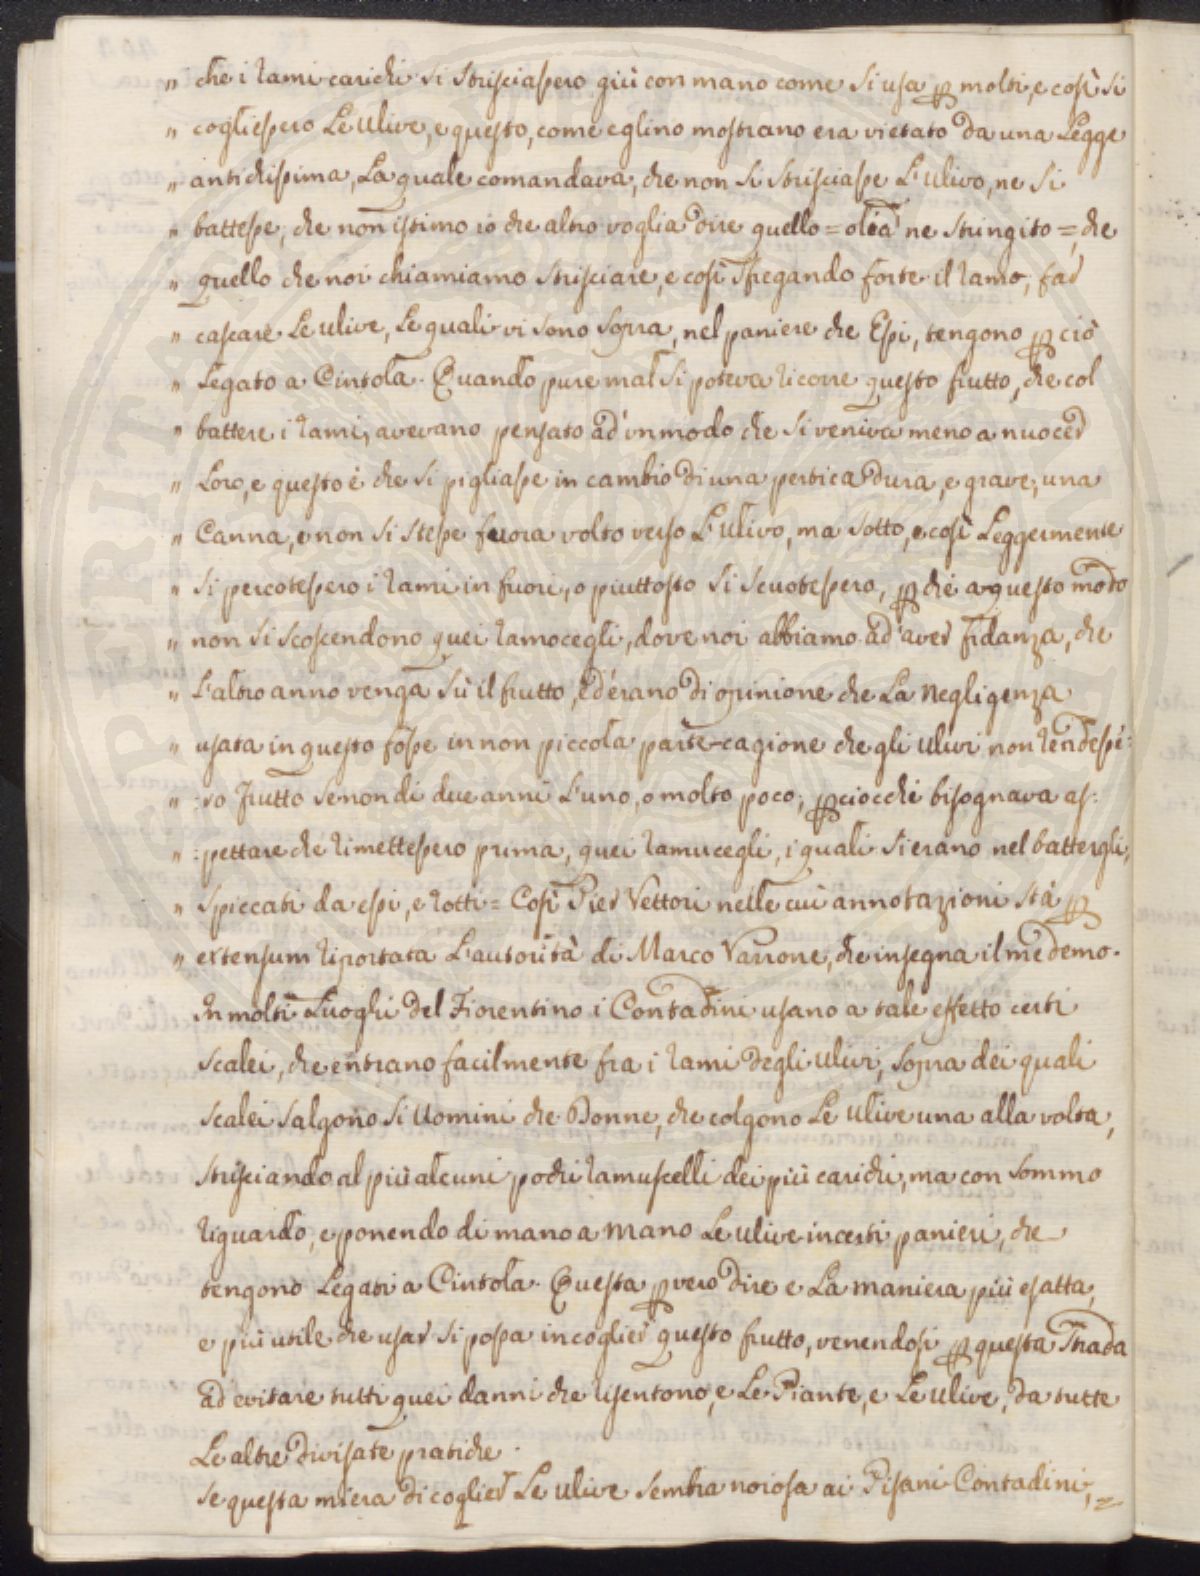 " che i rami carichi si strisciassero giù con mano come si usa p molti, e così si
" cogliessero Le Ulive, e questo, come eglino mostrano era vietato da una Legge
" antichissima, La quale comandava, che non si strisciasse L'Ulivo, ne si
" battesse, che non istimo io che altro voglia dire quello = oleā ne stringito =, che
" quello che noi chiamiamo strisciare, e così sfregando forte il ramo, far
" cascare Le ulive, Le quali vi sono sopra, nel paniere che Essi, tengono p ciò
" Legato a Cintola. Quando pure mal si poteva ricorre questo frutto, che col
" battere i rami, avevano pensato ad un modo che si veniva meno a nuocer
" Loro, e questo è che si pigliasse in cambio di una pertica dura, e grave, una
" Canna, e non si stesse fuora volto verso L'Ulivo, ma sotto, e così Leggermente
" si percotessero i rami in fuori, o piuttosto si scuotessero, p chè a questo modo
" non si scoscendono quei ramocegli, dove noi abbiamo ad aver fidanza, che
" L'altro anno venga sù il frutto, ed erano di opinione che La negligenza
" usata in questo fosse in non piccola parte cagione che gli ulivi non rendesse:
" :ro frutto se non di due anni L'uno, o molto poco; pciocchè bisognava as:
" :pettare che rimettessero prima, quei ramucegli, i quali si erano nel battergli,
" spiccati da essi, e rotti = Così Pier Vettori nelle cui annotazioni stà p
" extensum riportata L'autorità di Marco Varrone, che insegna il medemo.
In molti Luoghi del Fiorentino i Contadini usano a tale effetto certi
scalei, che entrano facilmente fra i rami degli ulivi, sopra dei quali
scalei salgono si Uomini che Donne, che colgono Le ulive una alla volta,
strisciando al più alcuni pochi ramuscelli dei più carichi, ma con sommo
riguardo, e ponendo di mano a mano Le ulive in certi panieri, che
tengono Legati a Cintola. Questa p vero dire e La maniera più esatta,
e più utile che usar si possa in coglier questo frutto, venendosi p questa strada
ad evitare tutti quei danni che risentono, e Le Piante, e Le Ulive, da tutte
Le altre divisate pratiche.
Se questa miera di coglier Le ulive sembra noiosa ai Pisani Contadini,